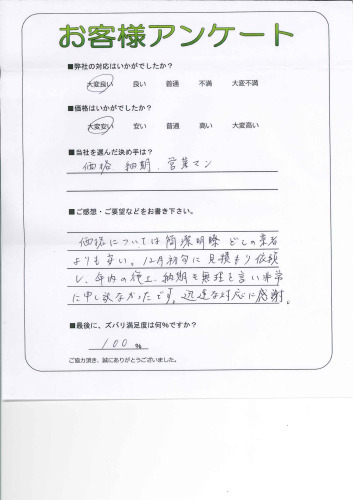 お客様アンケート
■弊社の対応はいかがでしたか？
大変良い 良い 普通 不満 大変不満
■価格はいかがでしたか？
大変安い 安い 普通 高い 大変高い
■当社を選んだ決め手は？
価格 納期、営業マン
■ご感想・ご要望などをお書き下さい。
価格については簡潔明瞭 どこの業者
よりも安い。12月初旬に見積もり依頼
し、年内の施工、納期も無理を言い非常
に申し訳なかったです。迅速な対応に感謝。
■最後に、ズバリ満足度は何%ですか？
100 %
ご協力頂き、誠にありがとうございました。